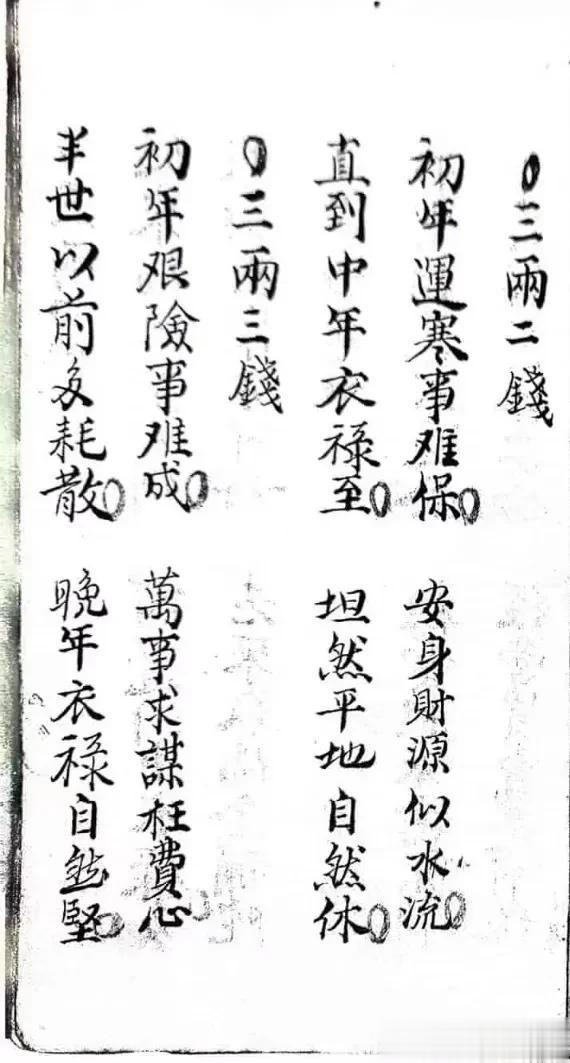 三兩二錢
初年運寒事难保 安身財源似水流
直到中年衣禄至 坦然平地自然休
三兩三錢
初年艰險事难成 萬事求謀枉費心
半世以前多耗散 晚年衣禄自然堅